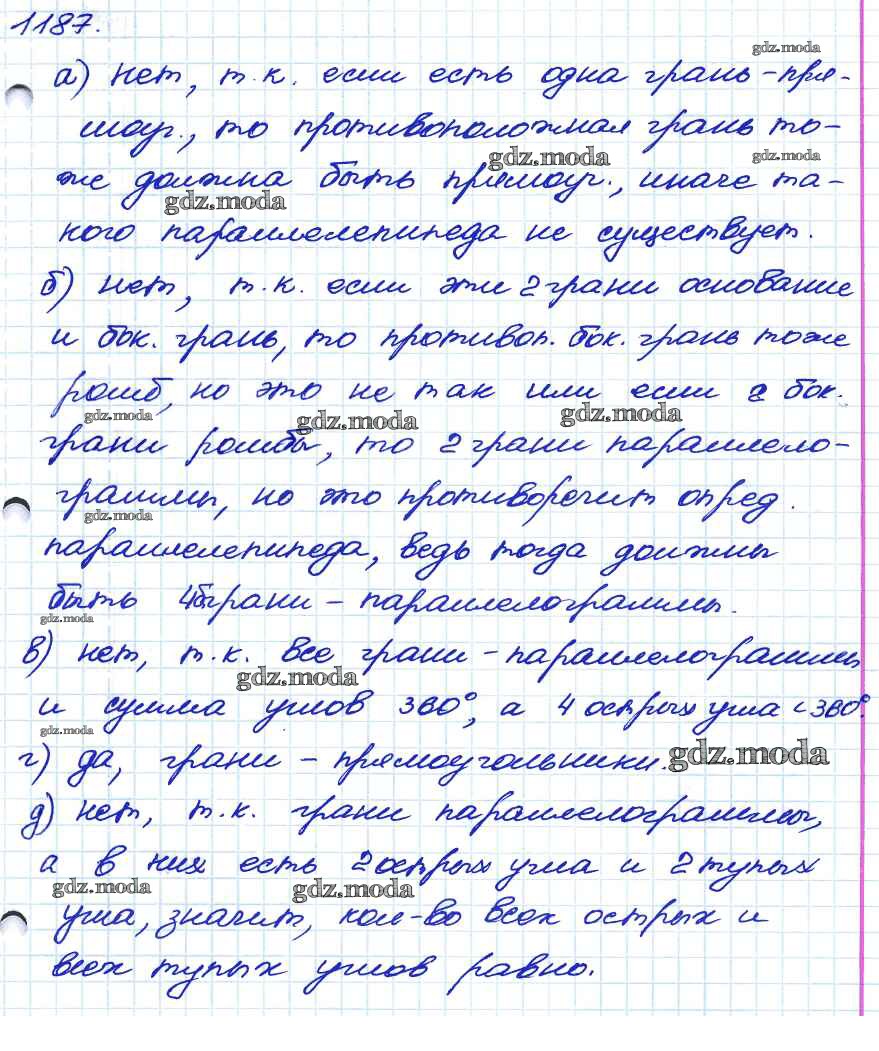 1187.
gdz.moda
а) нет, т.к. если есть одна грань - пря-
моуг., то противоположная грань то-
gdz.moda gdz.moda
же должна быть прямоуг., иначе та-
gdz.moda
кого параллелепипеда не существует.
б) нет, т.к. если эти 2 грани основание
и бок. грань, то противоп. бок. грань тоже
ромб, но это не так или если 2 бок.
gdz.moda gdz.moda gdz.moda
грани ромбы, то 2 грани параллело-
граммы, но это противоречит опред.
gdz.moda
параллелепипеда, ведь тогда должны
быть 4 грани - параллелограммы.
gdz.moda
в) нет, т.к. все грани - параллелограммы
gdz.moda
и сумма углов 360°, а 4 острых угла < 360°.
gdz.moda
г) да, грани - прямоугольники.
gdz.moda
д) нет, т.к. грани параллелограммы,
а в них есть 2 острых угла и 2 тупых
gdz.moda gdz.moda
угла, значит, кол-во всех острых и
всех тупых углов равно.